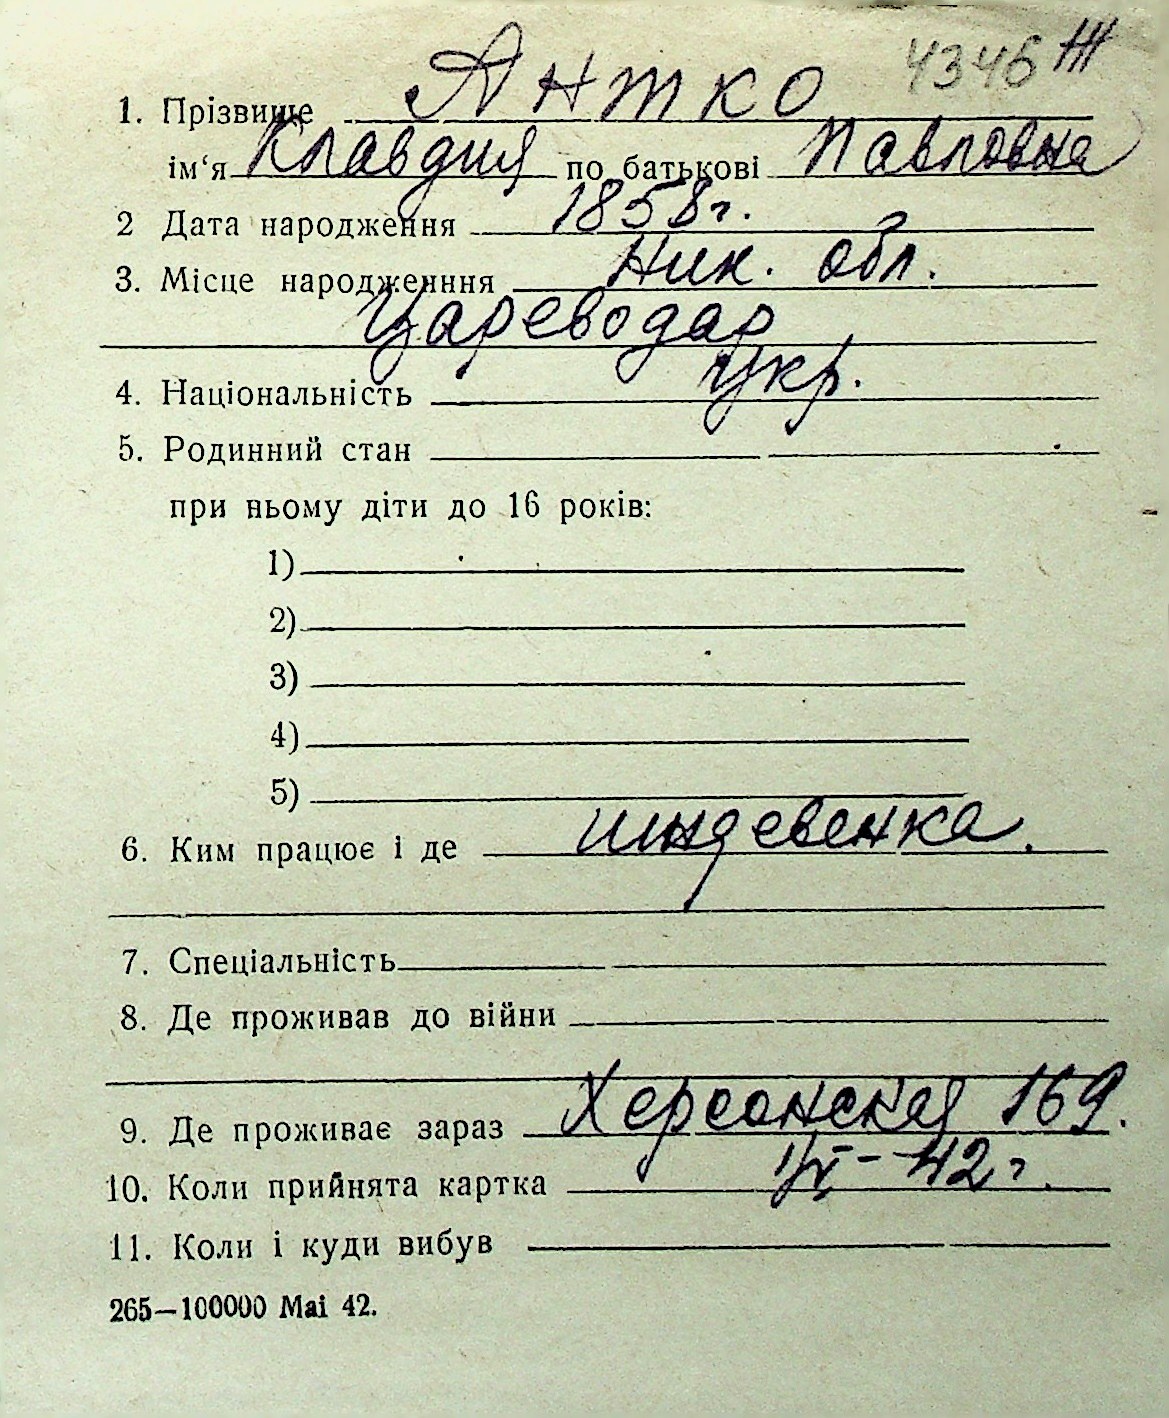 4346 Ж
1. Прізвище Антко
ім‘я Клавдия по батькові Павловна
2 Дата народження 1858 г.
3. Місце народженння Ник. обл.
Цареводар
4. Національність Укр.
5. Родинний стан
при ньому діти до 16 років:
1)
2)
3)
4)
5)
6. Ким працює і де индевенка.
7. Спеціальність
8. Де проживав до війни
9. Де проживає зараз Херсонская 169.
10. Коли прийнята картка -42 г.
11. Коли і куди вибув
265—100000 Mai 42.